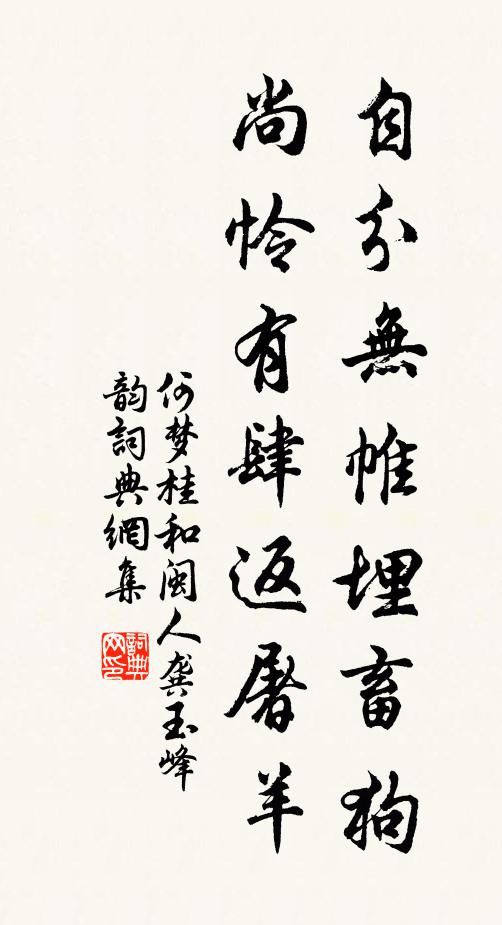 自分無帷埋畜狗
尚怜有肆返屠羊
何梦桂和闽人龚玉峰
韵詞典網集
詞典網印